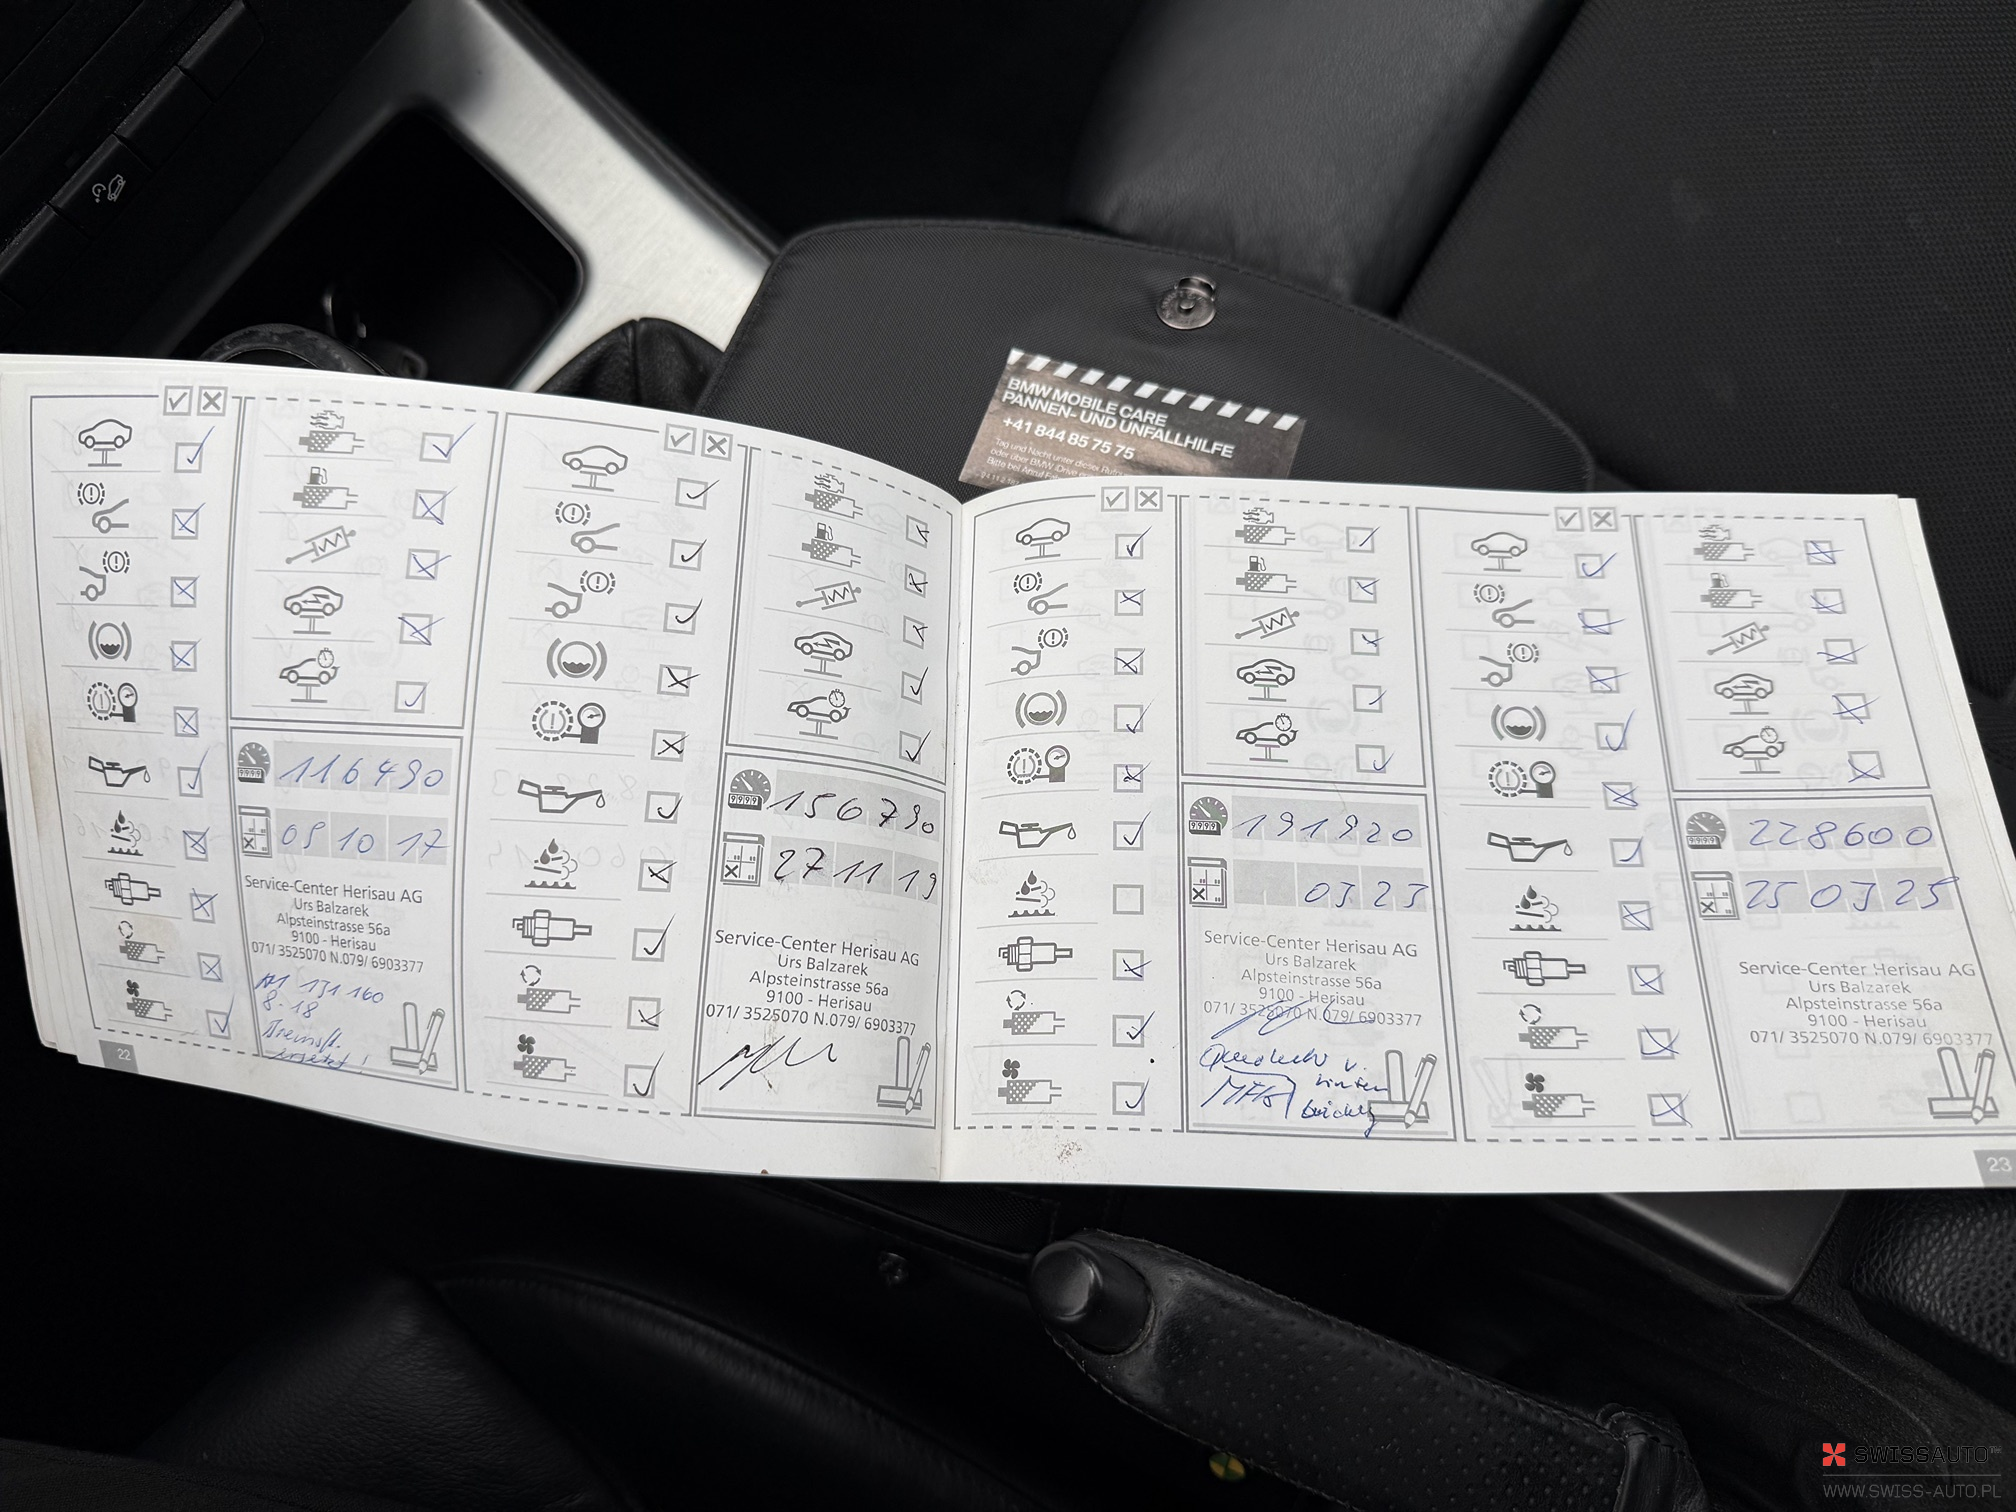 BMW MOBILE CARE
PANNEN- UND UNFALLHILFE
+41 844 85 75 75
Tag und Nacht unter dieser
oder über BMW iDrive
Bitte bei Anruf
9999
116490
09 10 17
Service-Center Herisau AG
Urs Balzarek
Alpsteinstrasse 56a
9100 - Herisau
071/ 3525070 N.079/ 6903377
131 160
8.18
ersetzt!
22
9999
156790
27 11 19
Service-Center Herisau AG
Urs Balzarek
Alpsteinstrasse 56a
9100 - Herisau
071/ 3525070 N.079/ 6903377
9999
191920
03 23
Service-Center Herisau AG
Urs Balzarek
Alpsteinstrasse 56a
9100 - Herisau
071/ 3525070 N.079/ 6903377
hinten
9999
228600
25 03 25
Service-Center Herisau AG
Urs Balzarek
Alpsteinstrasse 56a
9100 - Herisau
071/ 3525070 N.079/ 6903377
23
SWISSAUTO
WWW.SWISS-AUTO.PL